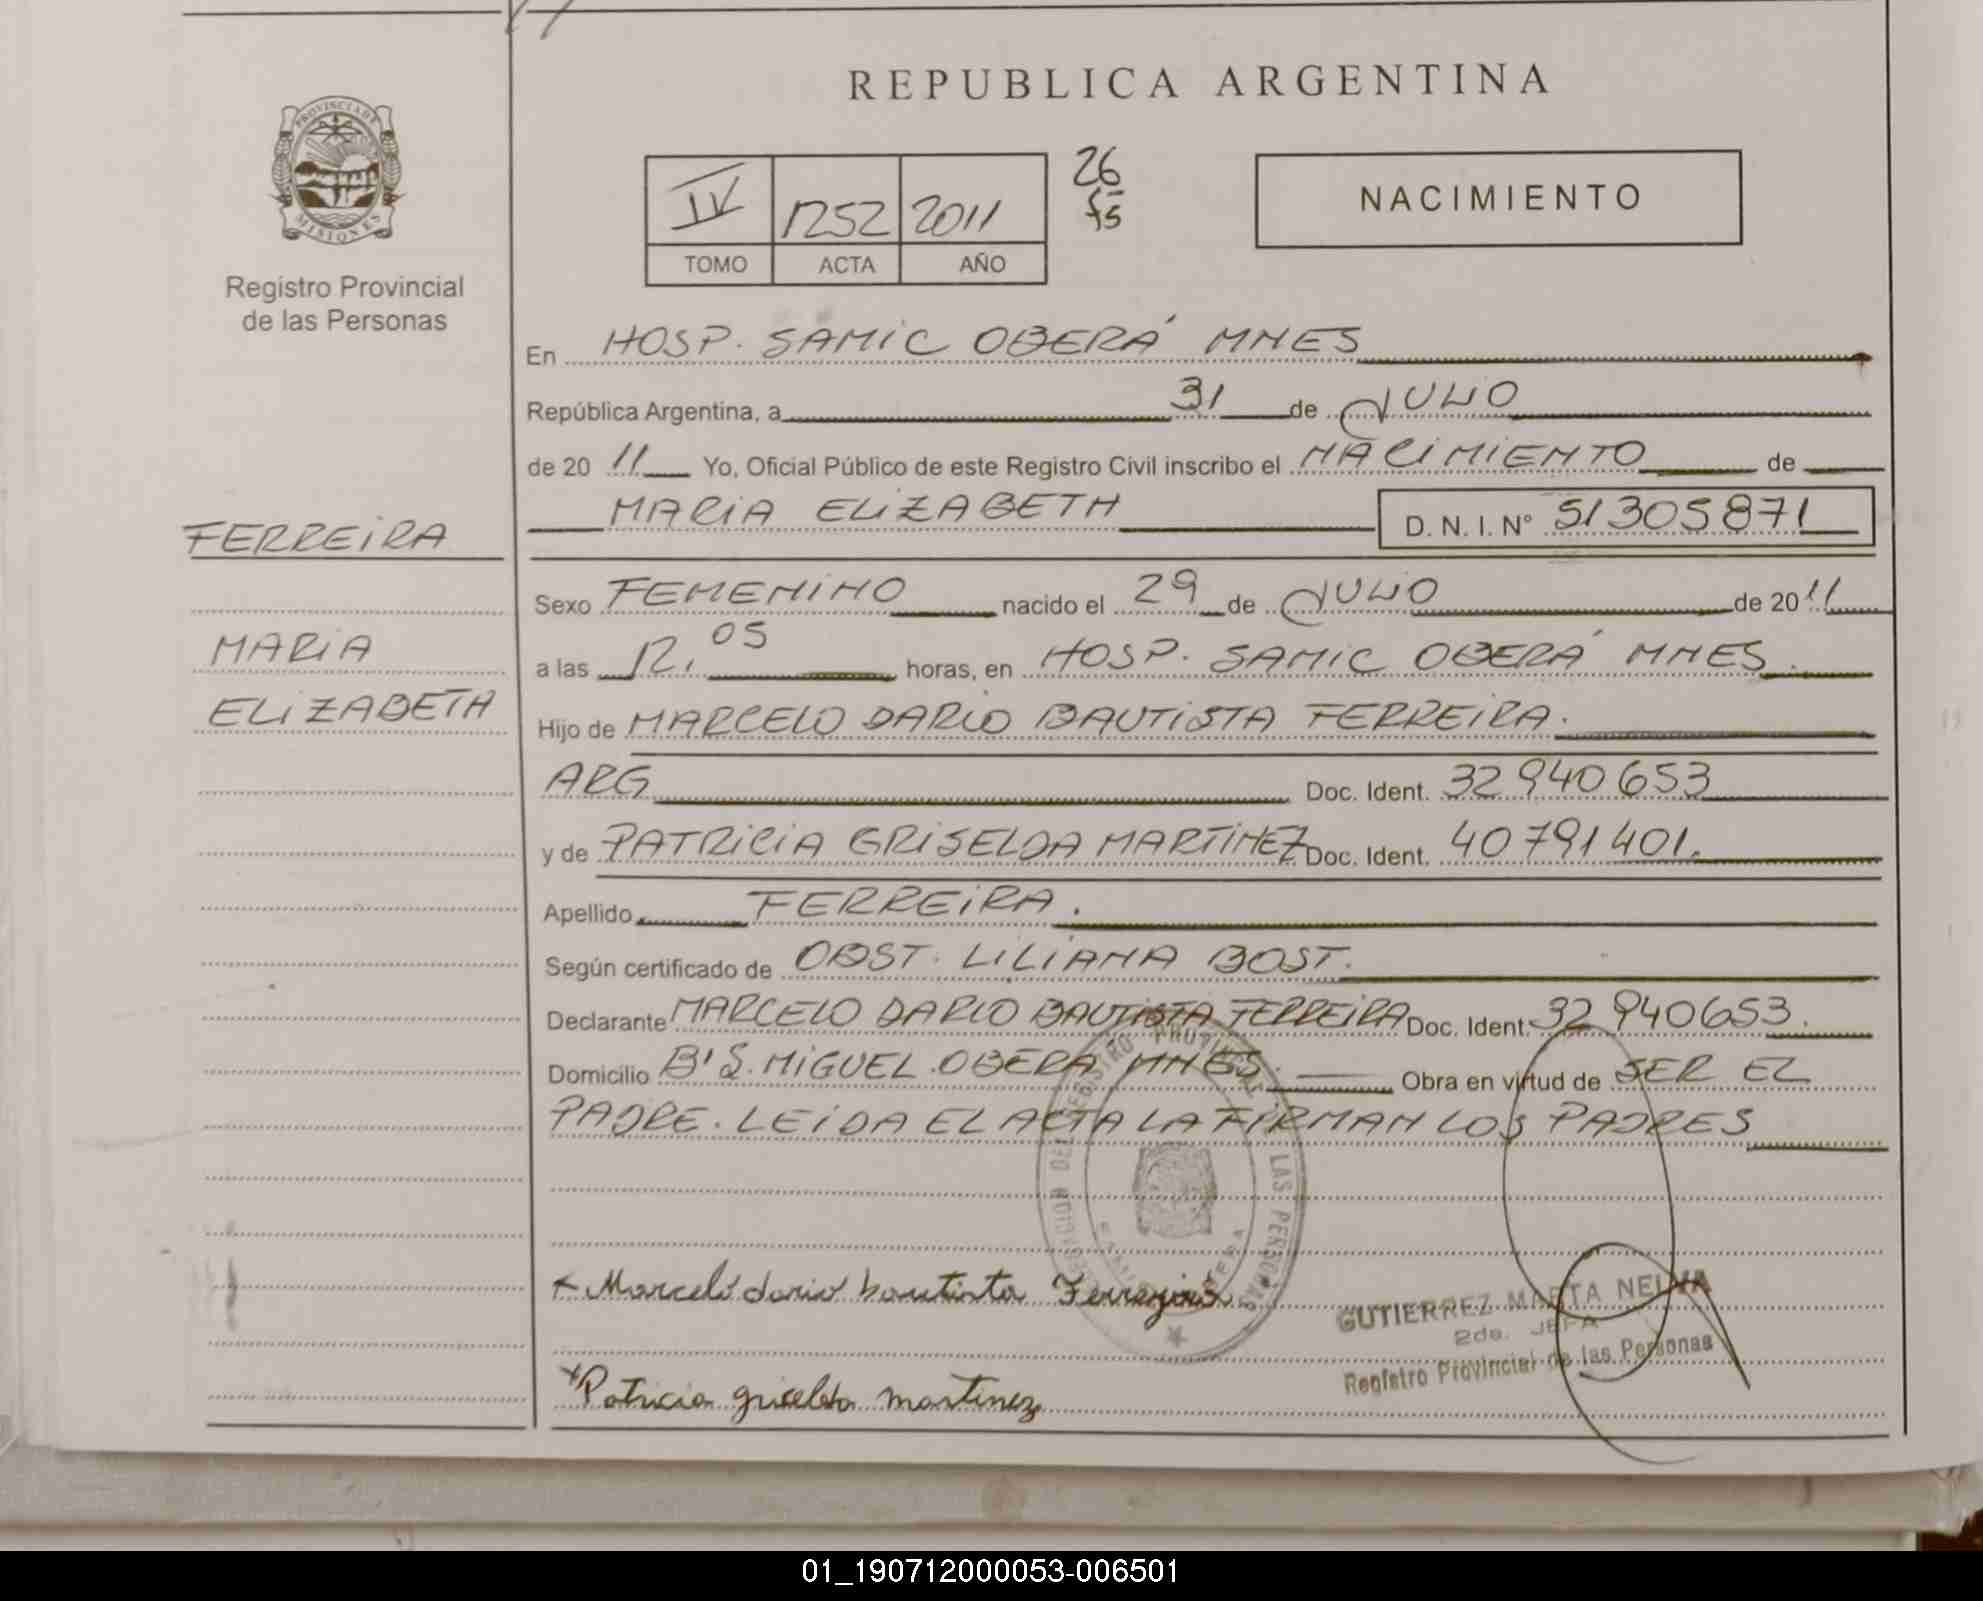 REPUBLICA ARGENTINA
PROVINCIA DE
MISIONES
Registro Provincial
de las Personas
IV 1252 2011
TOMO ACTA AÑO
26
fs
NACIMIENTO
En HOSP. SAMIC OBERÁ MNES
República Argentina, a 31 de JULIO
de 20 11 Yo, Oficial Público de este Registro Civil inscribo el NACIMIENTO de
MARIA ELIZABETH D. N. I. N° 51305871
FERREIRA
MARIA
ELIZABETH
Sexo FEMENINO nacido el 29 de JULIO de 20 11
a las 12,05 horas, en HOSP. SAMIC OBERÁ MNES.
Hijo de MARCELO DARIO BAUTISTA FERREIRA.
ARG Doc. Ident. 32940653
y de PATRICIA GRISELDA MARTINEZ Doc. Ident. 40791401.
Apellido FERREIRA.
Según certificado de OBST. LILIANA BOST.
Declarante MARCELO DARIO BAUTISTA FERREIRA Doc. Ident. 32940653.
Domicilio B' S. MIGUEL OBERÁ MNES. Obra en virtud de SER EL
PADRE. LEIDA EL ACTA LA FIRMAN LOS PADRES
Marcelo dario bautista
Patricia griselda martinez
GUTIERREZ MARTA NELVA
2da. JEFA
Registro Provincial de las Personas
01_190712000053-006501